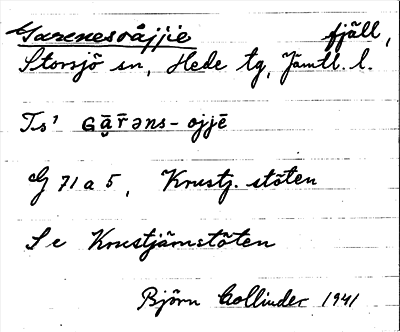 Garenesoåjjie fjäll,
Storsjö sn, Hede tg, Jämtl. l.
Ts¹ ɢā̮r̄əns-ojjē
G 71 a 5, Krustj. stöten
Se Krustjärnstöten
Björn Collinder 1941